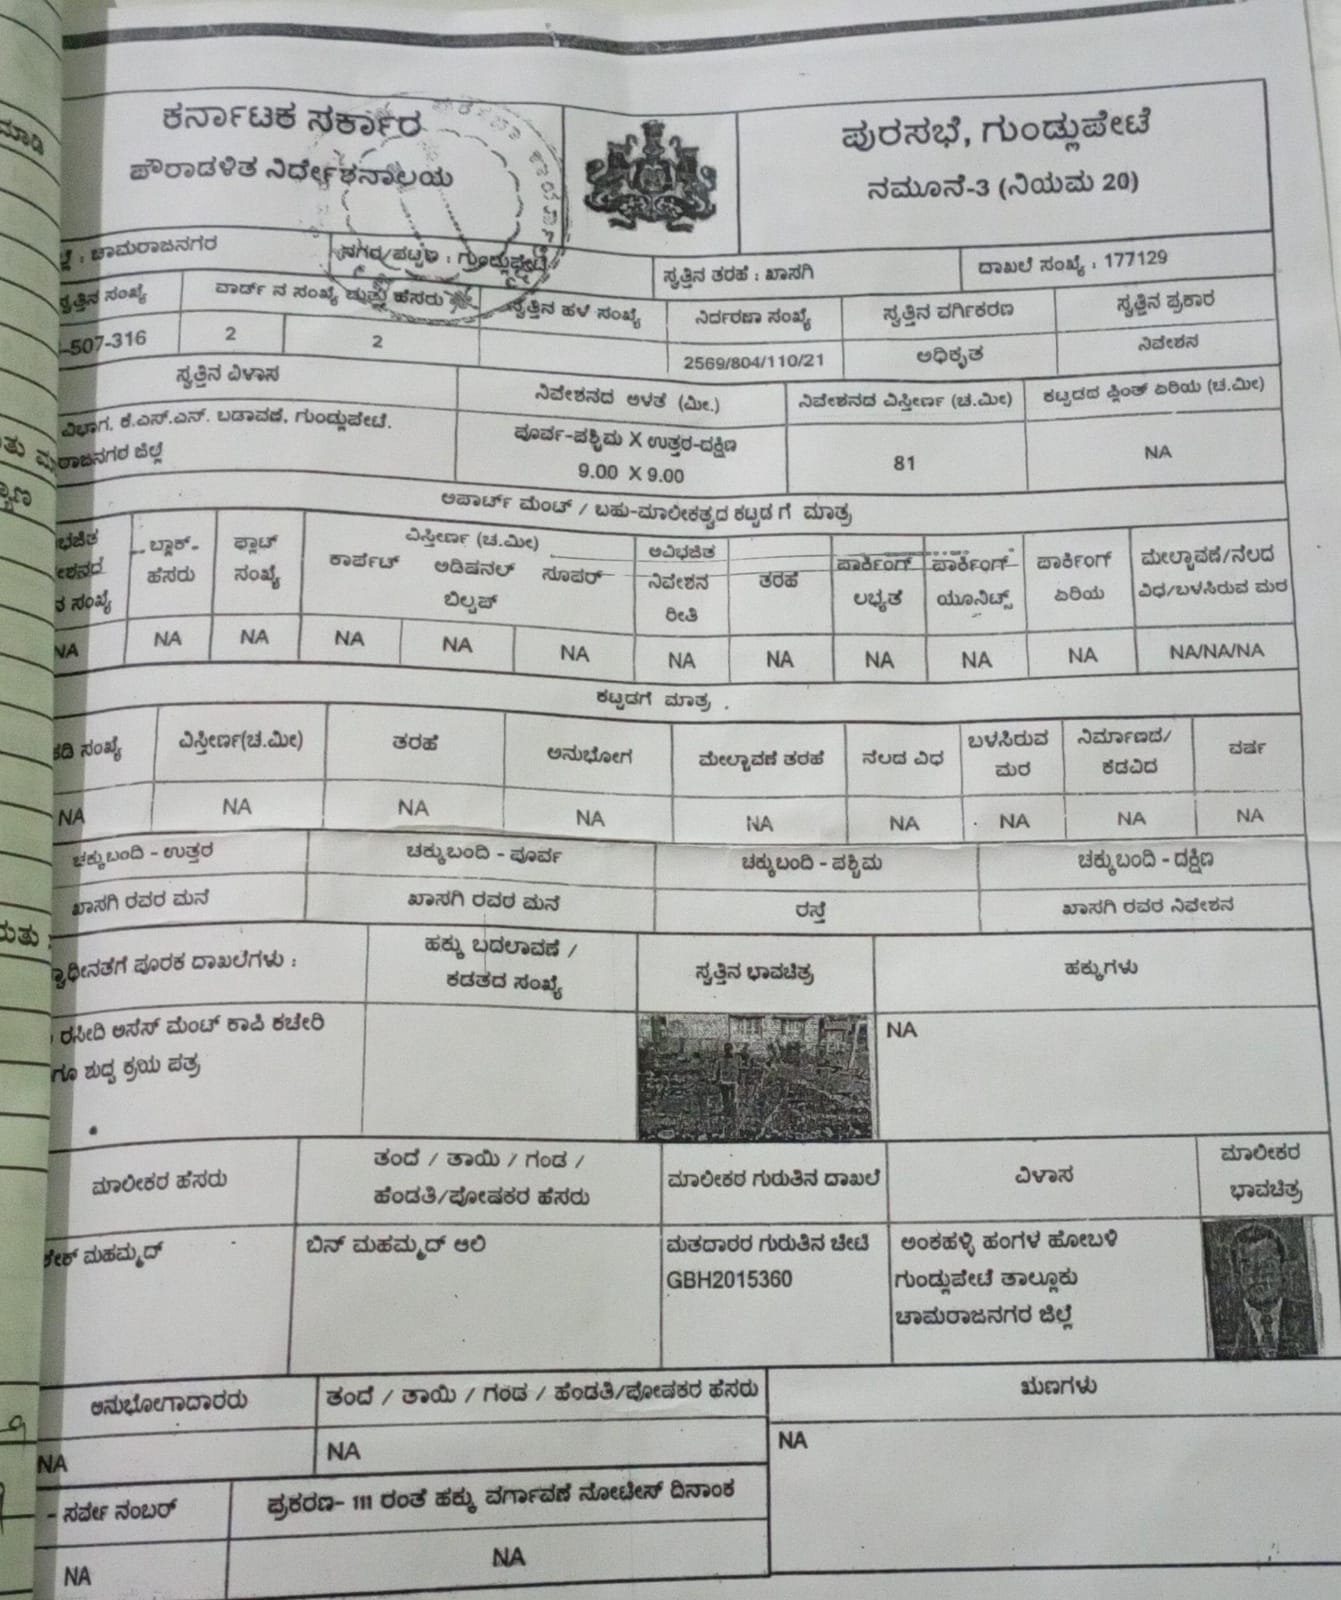 ಕರ್ನಾಟಕ ಸರ್ಕಾರ
ಪೌರಾಡಳಿತ ನಿರ್ದೇಶನಾಲಯ
ಪುರಸಭೆ, ಗುಂಡ್ಲುಪೇಟೆ
ನಮೂನೆ-3 (ನಿಯಮ 20)
: ಚಾಮರಾಜನಗರ
ನಗರ/ಪಟ್ಟಣ : ಗುಂಡ್ಲುಪೇಟೆ
ಸ್ವತ್ತಿನ ತರಹೆ : ಖಾಸಗಿ
ದಾಖಲೆ ಸಂಖ್ಯೆ : 177129
ಸ್ವತ್ತಿನ ಸಂಖ್ಯೆ
ವಾರ್ಡ್ ನ ಸಂಖ್ಯೆ ಮತ್ತು ಹೆಸರು
ಸ್ವತ್ತಿನ ಹಳೆ ಸಂಖ್ಯೆ
ನಿರ್ದರಣಾ ಸಂಖ್ಯೆ
ಸ್ವತ್ತಿನ ವರ್ಗಿಕರಣ
ಸ್ವತ್ತಿನ ಪ್ರಕಾರ
-507-316
2
2
2569/804/110/21
ಅಧಿಕೃತ
ನಿವೇಶನ
ಸ್ವತ್ತಿನ ವಿಳಾಸ
ನಿವೇಶನದ ಅಳತೆ (ಮೀ.)
ನಿವೇಶನದ ವಿಸ್ತೀರ್ಣ (ಚ.ಮೀ)
ಕಟ್ಟಡದ ಪ್ಲಿಂತ್ ಏರಿಯ (ಚ.ಮೀ)
ವಿಭಾಗ, ಕೆ.ಎಸ್.ಎನ್. ಬಡಾವಣೆ, ಗುಂಡ್ಲುಪೇಟೆ.
ರಾಜನಗರ ಜಿಲ್ಲೆ
ಪೂರ್ವ-ಪಶ್ಚಿಮ X ಉತ್ತರ-ದಕ್ಷಿಣ
9.00 X 9.00
81
NA
ಅಪಾರ್ಟ್ ಮೆಂಟ್ / ಬಹು-ಮಾಲೀಕತ್ವದ ಕಟ್ಟಡ ಗೆ ಮಾತ್ರ
ಬ್ಲಾಕ್-
ಹೆಸರು
ಫ್ಲಾಟ್
ಸಂಖ್ಯೆ
ವಿಸ್ತೀರ್ಣ (ಚ.ಮೀ)
ಕಾರ್ಪೆಟ್ ಅಡಿಷನಲ್ ಸೂಪರ್
ಬಿಲ್ಟಪ್
ಅವಿಭಜಿತ
ನಿವೇಶನ
ರೀತಿ
ತರಹೆ
ಪಾರ್ಕಿಂಗ್
ಲಭ್ಯತೆ
ಪಾರ್ಕಿಂಗ್
ಯೂನಿಟ್ಸ್
ಪಾರ್ಕಿಂಗ್
ಏರಿಯ
ಮೇಲ್ಚಾವಣೆ/ನೆಲದ
ವಿಧ/ಬಳಸಿರುವ ಮರ
NA NA NA NA NA NA NA NA NA NA NA NA/NA/NA
ಕಟ್ಟಡಗೆ ಮಾತ್ರ .
ಸಂಖ್ಯೆ
ವಿಸ್ತೀರ್ಣ(ಚ.ಮೀ)
ತರಹೆ
ಅನುಭೋಗ
ಮೇಲ್ಚಾವಣೆ ತರಹೆ
ನೆಲದ ವಿಧ
ಬಳಸಿರುವ
ಮರ
ನಿರ್ಮಾಣದ/
ಕಡವಿದ
ವರ್ಷ
NA NA NA NA NA NA NA NA NA
ಚಕ್ಕುಬಂದಿ - ಉತ್ತರ
ಚಕ್ಕುಬಂದಿ - ಪೂರ್ವ
ಚಕ್ಕುಬಂದಿ - ಪಶ್ಚಿಮ
ಚಕ್ಕುಬಂದಿ - ದಕ್ಷಿಣ
ಖಾಸಗಿ ರವರ ಮನೆ
ಖಾಸಗಿ ರವರ ಮನೆ
ರಸ್ತೆ
ಖಾಸಗಿ ರವರ ನಿವೇಶನ
ಸ್ವಾಧೀನತೆಗೆ ಪೂರಕ ದಾಖಲೆಗಳು :
ಹಕ್ಕು ಬದಲಾವಣೆ /
ಕಡತದ ಸಂಖ್ಯೆ
ಸ್ವತ್ತಿನ ಭಾವಚಿತ್ರ
ಹಕ್ಕುಗಳು
ರಸೀದಿ ಅಸೆಸ್ ಮೆಂಟ್ ಕಾಪಿ ಕಚೇರಿ
ಶುದ್ಧ ಕ್ರಯ ಪತ್ರ
NA
ಮಾಲೀಕರ ಹೆಸರು
ತಂದೆ / ತಾಯಿ / ಗಂಡ /
ಹೆಂಡತಿ/ಪೋಷಕರ ಹೆಸರು
ಮಾಲೀಕರ ಗುರುತಿನ ದಾಖಲೆ
ವಿಳಾಸ
ಮಾಲೀಕರ
ಭಾವಚಿತ್ರ
ಮಹಮ್ಮದ್
ಬಿನ್ ಮಹಮ್ಮದ್ ಆಲಿ
ಮತದಾರರ ಗುರುತಿನ ಚೀಟಿ
GBH2015360
ಅಂಕಹಳ್ಳಿ ಹಂಗಳ ಹೋಬಳಿ
ಗುಂಡ್ಲುಪೇಟೆ ತಾಲ್ಲೂಕು
ಚಾಮರಾಜನಗರ ಜಿಲ್ಲೆ
ಅನುಭೋಗಾದಾರರು
ತಂದೆ / ತಾಯಿ / ಗಂಡ / ಹೆಂಡತಿ/ಪೋಷಕರ ಹೆಸರು
ಋಣಗಳು
NA
NA
NA
- ಸರ್ವೇ ನಂಬರ್
ಪ್ರಕರಣ- 111 ರಂತೆ ಹಕ್ಕು ವರ್ಗಾವಣೆ ನೋಟೀಸ್ ದಿನಾಂಕ
NA
NA